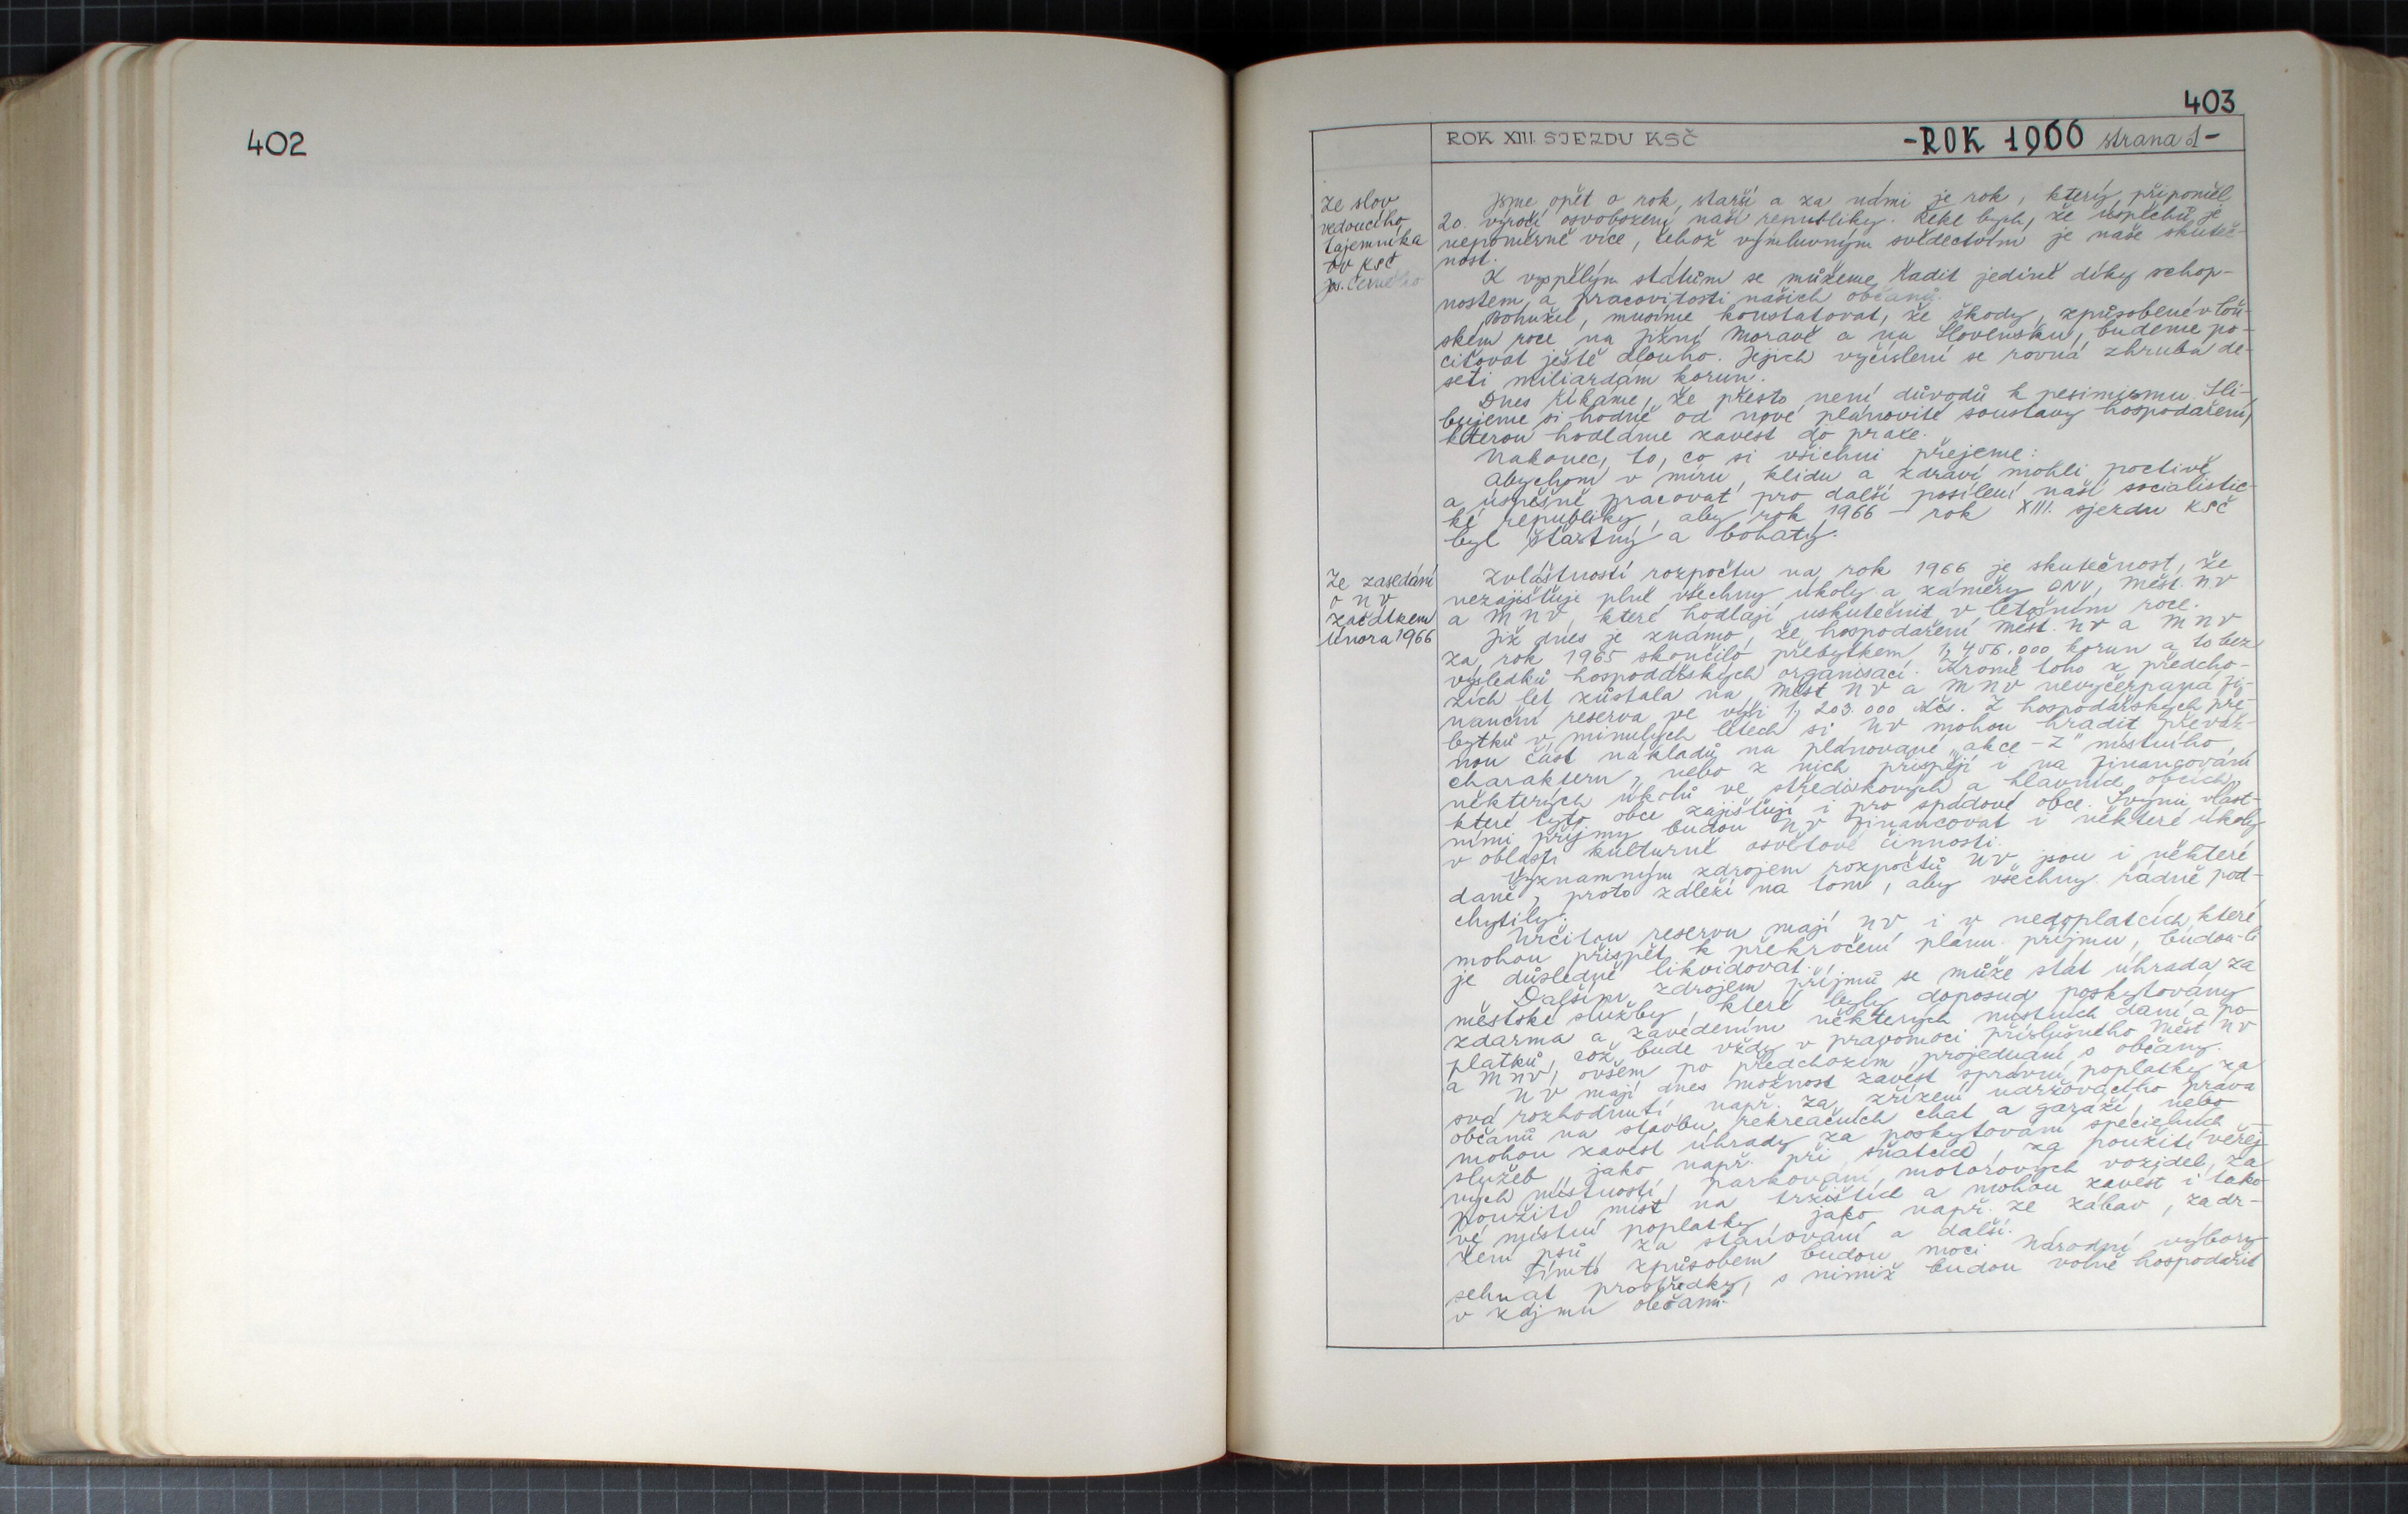 402
403
ROK XIII. SJEZDU KSČ
-ROK 1966 strana 1-
Ze slov
vedoucího
tajemníka
OV KSČ
Jos. Černého
Jsme opět o rok starší a za námi je rok, který připoměl
20. výročí osvobození naší republiky. Řekl bych, že úspěchů je
nepoměrně více, čehož výmluvným svědectvím je naše skuteč-
nost.
K vyspělým státům se můžeme řadit jedině díky schop-
nostem a pracovitosti našich občanů.
Bohužel, musíme konstatovat, že škody, způsobené v loň-
ském roce na jižní Moravě a na Slovensku, budeme po-
ciťovat ještě dlouho. Jejich vyčíslení se rovná zhruba de-
seti miliardám korun.
Dnes říkáme, že přesto není důvodů k pesimismu. Sli-
bujeme si hodně od nové plánovité soustavy hospodaření,
kterou hodláme zavést do praxe.
Nakonec, to, co si všichni přejeme:
Abychom v míru, klidu a zdraví mohli poctivě
a úspěšně pracovat pro další posílení naší socialistic-
ké republiky, aby rok 1966 - rok XIII. sjezdu KSČ
byl šťastný a bohatý.
Ze zasedání
ONV
začátkem
února 1966
Zvláštností rozpočtu na rok 1966 je skutečnost, že
nezajišťuje plně všechny úkoly a záměry ONV, Měst. NV
a MNV, které hodlají uskutečnit v letošním roce.
Již dnes je známo, že hospodaření Měst. NV a MNV
za rok 1965 skončilo přebytkem 1,456.000 korun a to bez
výsledků hospodářských organisací. Kromě toho z předcho-
zích let zůstala na Měst NV a MNV nevyčerpaná fi-
nanční reserva ve výši 1,203.000 Kčs. Z hospodářských pře-
bytků v minulých letech si NV mohou hradit převáž-
nou část nákladů na plánované „akce-Z" místního
charakteru, nebo z nich přispějí i na financování
některých úkolů ve střediskových a hlavních obcích,
které tyto obce zajišťují i pro spádové obce. Svými vlast-
ními příjmy budou NV financovat i některé úkoly
v oblasti kulturně osvětové činnosti.
Významným zdrojem rozpočtů NV jsou i některé
daně, proto záleží na tom, aby všechny řádně pod-
chytily.
Určitou reservu mají NV i v nedoplatcích, které
mohou přispět k překročení plánu příjmu, budou-li
je důsledně likvidovat.
Dalším zdrojem příjmů se může stát úhrada za
městské služby, které byly doposud poskytovány
zdarma a zavedením některých místních daní a po-
platků, což bude vždy v pravomoci příslušného Měst NV
a MNV, ovšem po předchozím projednání s občany.
NV mají dnes možnost zavést správní poplatky za
svá rozhodnutí např. za zřízení udržovacího práva
občanů na stavbu rekreačních chat a garáží, nebo
mohou zavést úhrady za poskytování specielních
služeb, jako např. při sňatcích, za použití veřej-
ných místností, parkování motorových vozidel, za
použití míst na tržištích a mohou zavést i tako-
vé místní poplatky, jako např. ze zábav, za dr-
žení psů, za stanování a další.
Tímto způsobem budou moci národní výbory
sehnat prostředky, s nimiž budou volně hospodařit
v zájmu občanů.